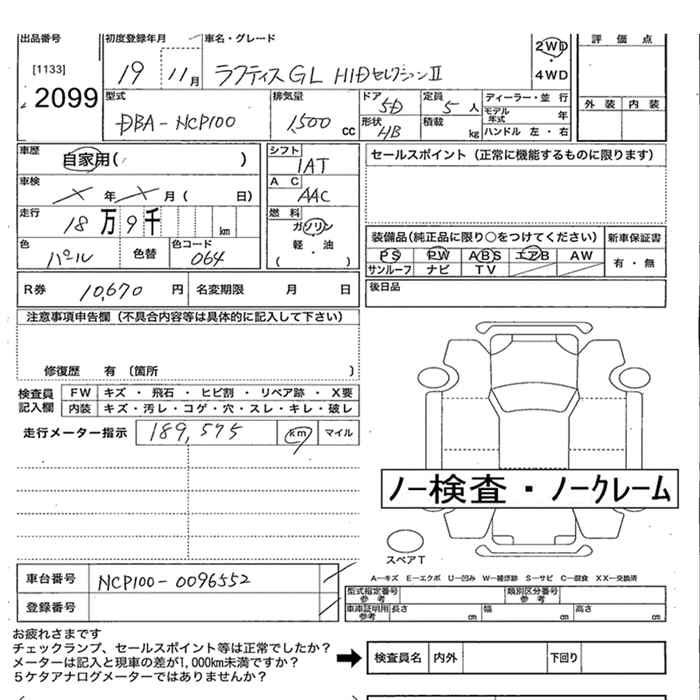 出品番号 初度登録年月 車名・グレード 評価点
[1133] 19 11月 ラクティス GL HIDセレクションⅡ 2WD・4WD
2099
外装 内装
型式 排気量 ドア 定員 ディーラー・並行
DBA-NCP100 1,500 cc 5D 5人 モデル年式 年
形状 HB 積載 kg ハンドル 左・右
車歴 自家用( ) シフト IAT セールスポイント(正常に機能するものに限ります)
車検 年 月( 日) AC AAC
走行 18万9千 km 燃料 ガソリン 軽・油 ( )
装備品(純正品に限り○をつけてください) 新車保証書
色 パール 色替 色コード 064
PS PW ABS エアB AW 有・無
サンルーフ ナビ TV
R券 10,670円 名変期限 月 日 後日品
注意事項申告欄(不具合内容等は具体的に記入して下さい)
修復歴 有〔箇所 〕
検査員記入欄 FW キズ・飛石・ヒビ割・リペア跡・X要
内装 キズ・汚レ・コゲ・穴・スレ・キレ・破レ
走行メーター指示 189,575 km マイル
ノー検査・ノークレーム
スペアT
A−キズ E−エクボ U−凹み W−補修跡 S−サビ C−腐食 XX−交換済
車台番号 NCP100-0096552
型式指定番号参考 類別区分番号参考
登録番号
車庫証明用参考 長さ cm 幅 cm 高さ cm
お疲れさまです
チェックランプ、セールスポイント等は正常でしたか?
メーターは記入と現車の差が1,000km未満ですか?
5ケタアナログメーターではありませんか?
検査員名 内外 下回り